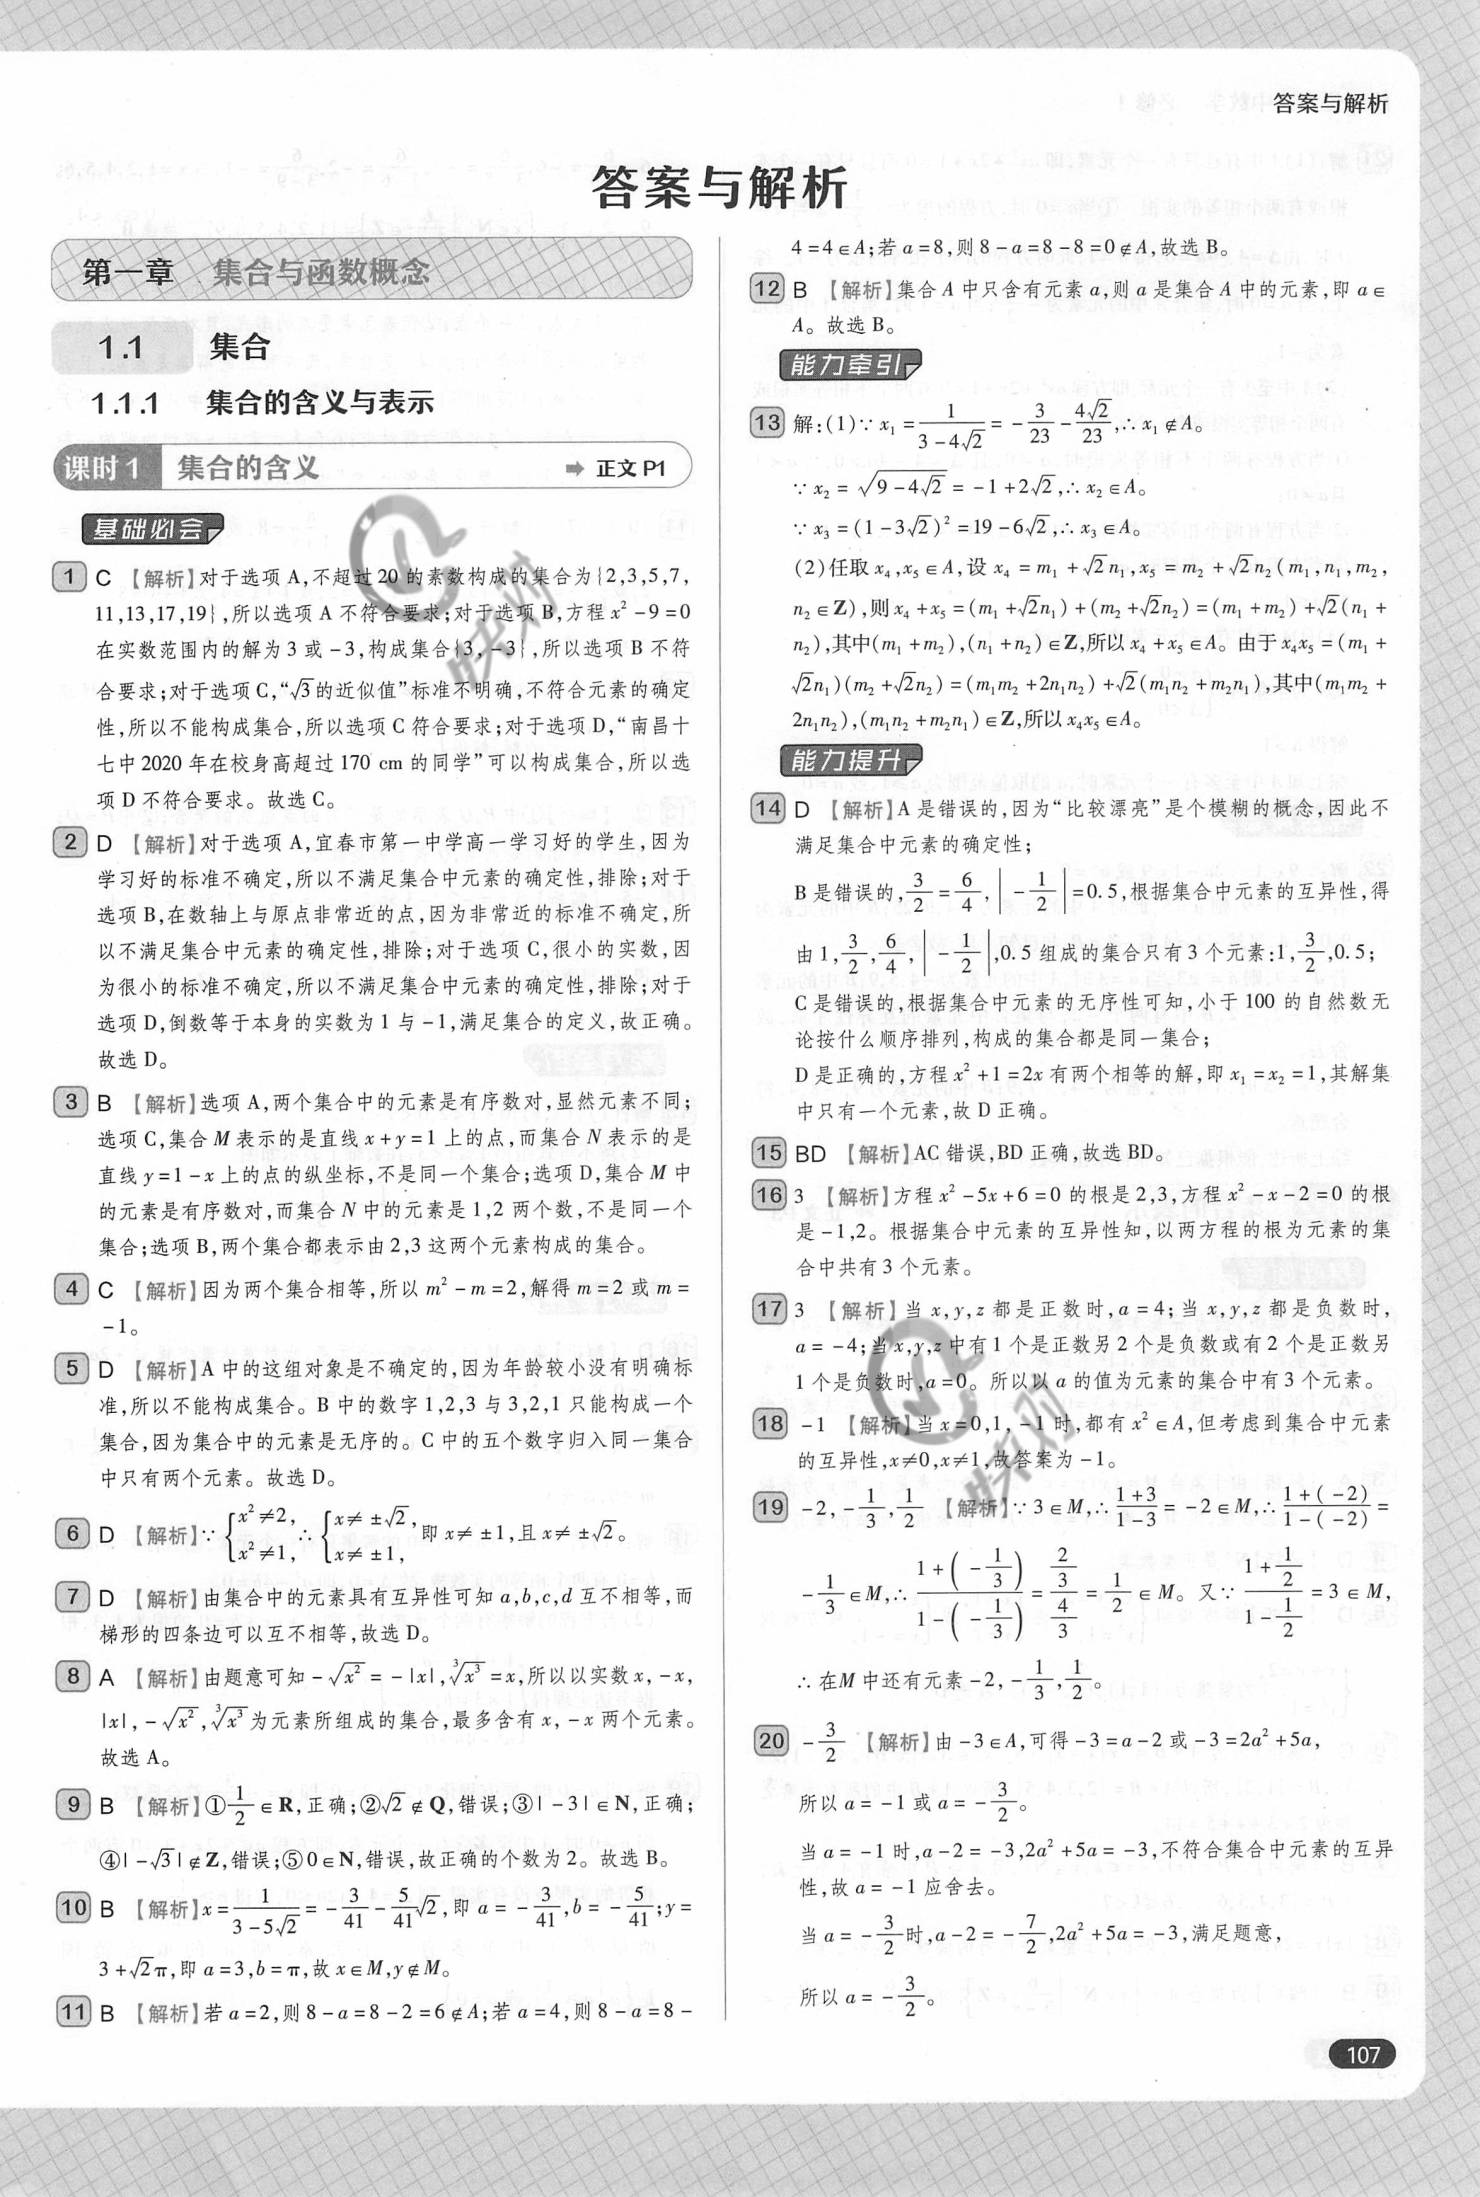 答案与解析
答案与解析
第一章 集合与函数概念
1.1 集合
1.1.1 集合的含义与表示
课时1 集合的含义 ➡ 正文P1
基础必会
1 C 【解析】对于选项A,不超过20的素数构成的集合为{2,3,5,7,
11,13,17,19},所以选项A不符合要求;对于选项B,方程x²-9=0
在实数范围内的解为3或-3,构成集合{3,-3},所以选项B不符
合要求;对于选项C,“√3的近似值”标准不明确,不符合元素的确定
性,所以不能构成集合,所以选项C符合要求;对于选项D,“南昌十
七中2020年在校身高超过170 cm的同学”可以构成集合,所以选
项D不符合要求。故选C。
2 D 【解析】对于选项A,宜春市第一中学高一学习好的学生,因为
学习好的标准不确定,所以不满足集合中元素的确定性,排除;对于
选项B,在数轴上与原点非常近的点,因为非常近的标准不确定,所
以不满足集合中元素的确定性,排除;对于选项C,很小的实数,因
为很小的标准不确定,所以不满足集合中元素的确定性,排除;对于
选项D,倒数等于本身的实数为1与-1,满足集合的定义,故正确。
故选D。
3 B 【解析】选项A,两个集合中的元素是有序数对,显然元素不同;
选项C,集合M表示的是直线x+y=1上的点,而集合N表示的是
直线y=1-x上的点的纵坐标,不是同一个集合;选项D,集合M中
的元素是有序数对,而集合N中的元素是1,2两个数,不是同一个
集合;选项B,两个集合都表示由2,3这两个元素构成的集合。
4 C 【解析】因为两个集合相等,所以m²-m=2,解得m=2或m=
-1。
5 D 【解析】A中的这组对象是不确定的,因为年龄较小没有明确标
准,所以不能构成集合。B中的数字1,2,3与3,2,1只能构成一个
集合,因为集合中的元素是无序的。C中的五个数字归入同一集合
中只有两个元素。故选D。
6 D 【解析】∵{x²≠2, x²≠1, ∴{x≠±√2, x≠±1, 即x≠±1,且x≠±√2。
7 D 【解析】由集合中的元素具有互异性可知a,b,c,d互不相等,而
梯形的四条边可以互不相等,故选D。
8 A 【解析】由题意可知-√x²=-|x|,∛x³=x,所以以实数x,-x,
|x|,-√x²,∛x³为元素所组成的集合,最多含有x,-x两个元素。
故选A。
9 B 【解析】①1/2∈R,正确;②√2∉Q,错误;③|-3|∈N,正确;
④|-√3|∉Z,错误;⑤0∈N,错误,故正确的个数为2。故选B。
10 B 【解析】x=1/(3-5√2)=-3/41-5/41√2,即a=-3/41,b=-5/41;y=
3+√2π,即a=3,b=π,故x∈M,y∉M。
11 B 【解析】若a=2,则8-a=8-2=6∉A;若a=4,则8-a=8-
4=4∈A;若a=8,则8-a=8-8=0∉A,故选B。
12 B 【解析】集合A中只含有元素a,则a是集合A中的元素,即a∈
A。故选B。
能力牵引
13 解:(1)∵x₁=1/(3-4√2)=-3/23-4√2/23,∴x₁∉A。
∵x₂=√(9-4√2)=-1+2√2,∴x₂∈A。
∵x₃=(1-3√2)²=19-6√2,∴x₃∈A。
(2)任取x₄,x₅∈A,设x₄=m₁+√2n₁,x₅=m₂+√2n₂(m₁,n₁,m₂,
n₂∈Z),则x₄+x₅=(m₁+√2n₁)+(m₂+√2n₂)=(m₁+m₂)+√2(n₁+
n₂),其中(m₁+m₂),(n₁+n₂)∈Z,所以x₄+x₅∈A。由于x₄x₅=(m₁+
√2n₁)(m₂+√2n₂)=(m₁m₂+2n₁n₂)+√2(m₁n₂+m₂n₁),其中(m₁m₂+
2n₁n₂),(m₁n₂+m₂n₁)∈Z,所以x₄x₅∈A。
能力提升
14 D 【解析】A是错误的,因为“比较漂亮”是个模糊的概念,因此不
满足集合中元素的确定性;
B是错误的,3/2=6/4,|-1/2|=0.5,根据集合中元素的互异性,得
由1,3/2,6/4,|-1/2|,0.5组成的集合只有3个元素:1,3/2,0.5;
C是错误的,根据集合中元素的无序性可知,小于100的自然数无
论按什么顺序排列,构成的集合都是同一集合;
D是正确的,方程x²+1=2x有两个相等的解,即x₁=x₂=1,其解集
中只有一个元素,故D正确。
15 BD 【解析】AC错误,BD正确,故选BD。
16 3 【解析】方程x²-5x+6=0的根是2,3,方程x²-x-2=0的根
是-1,2。根据集合中元素的互异性知,以两方程的根为元素的集
合中共有3个元素。
17 3 【解析】当x,y,z都是正数时,a=4;当x,y,z都是负数时,
a=-4;当x,y,z中有1个是正数另2个是负数或有2个是正数另
1个是负数时,a=0。所以以a的值为元素的集合中有3个元素。
18 -1 【解析】当x=0,1,-1时,都有x²∈A,但考虑到集合中元素
的互异性,x≠0,x≠1,故答案为-1。
19 -2,-1/3,1/2 【解析】∵3∈M,∴(1+3)/(1-3)=-2∈M,∴(1+(-2))/(1-(-2))=
-1/3∈M,∴(1+(-1/3))/(1-(-1/3))=(2/3)/(4/3)=1/2∈M。又∵(1+1/2)/(1-1/2)=3∈M,
∴在M中还有元素-2,-1/3,1/2。
20 -3/2 【解析】由-3∈A,可得-3=a-2或-3=2a²+5a,
所以a=-1或a=-3/2。
当a=-1时,a-2=-3,2a²+5a=-3,不符合集合中元素的互异
性,故a=-1应舍去。
当a=-3/2时,a-2=-7/2,2a²+5a=-3,满足题意,
所以a=-3/2。
107